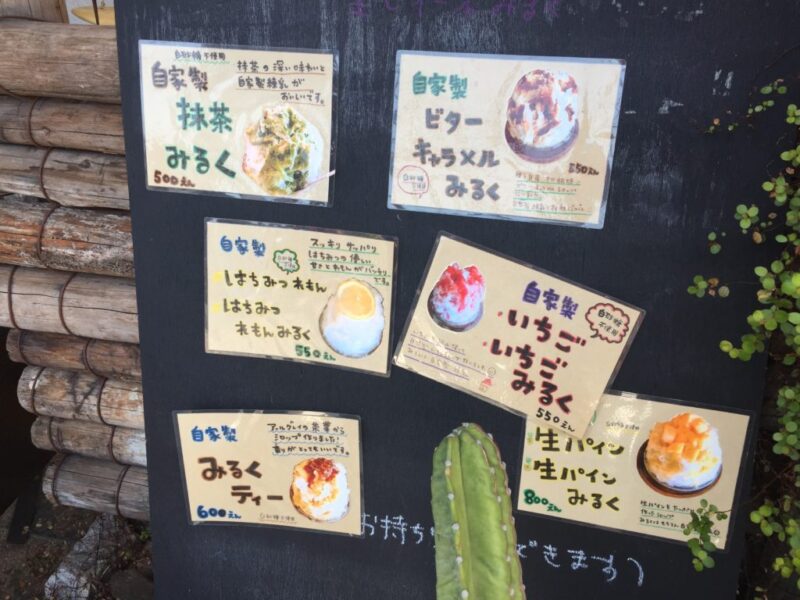 白砂糖不使用
自家製
抹茶
みるく
500えん
抹茶の深い味わいと
自家製練乳が
おいしいです。
自家製
ビター
キャラメル
みるく
550えん
白砂糖
不使用
自家製
白砂糖
不使用
スッキリ サッパリ
はちみつの優しい
甘さとれもんがバッチリ
です。
はちみつれもん
はちみつ
れもんみるく
550えん
自家製
白砂糖
不使用
いちご
いちご
みるく
550えん
自家製
みるく
ティー
600えん
アールグレイの茶葉から
シロップ作りました!
香りがとてもいいです。
白砂糖不使用
生パイン
生パイン
みるく
800えん
お持ち
できます